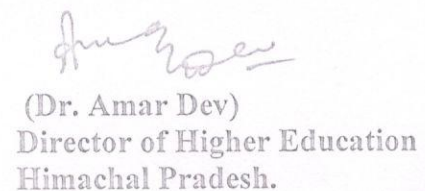 (Dr. Amar Dev)
Director of Higher Education
Himachal Pradesh.